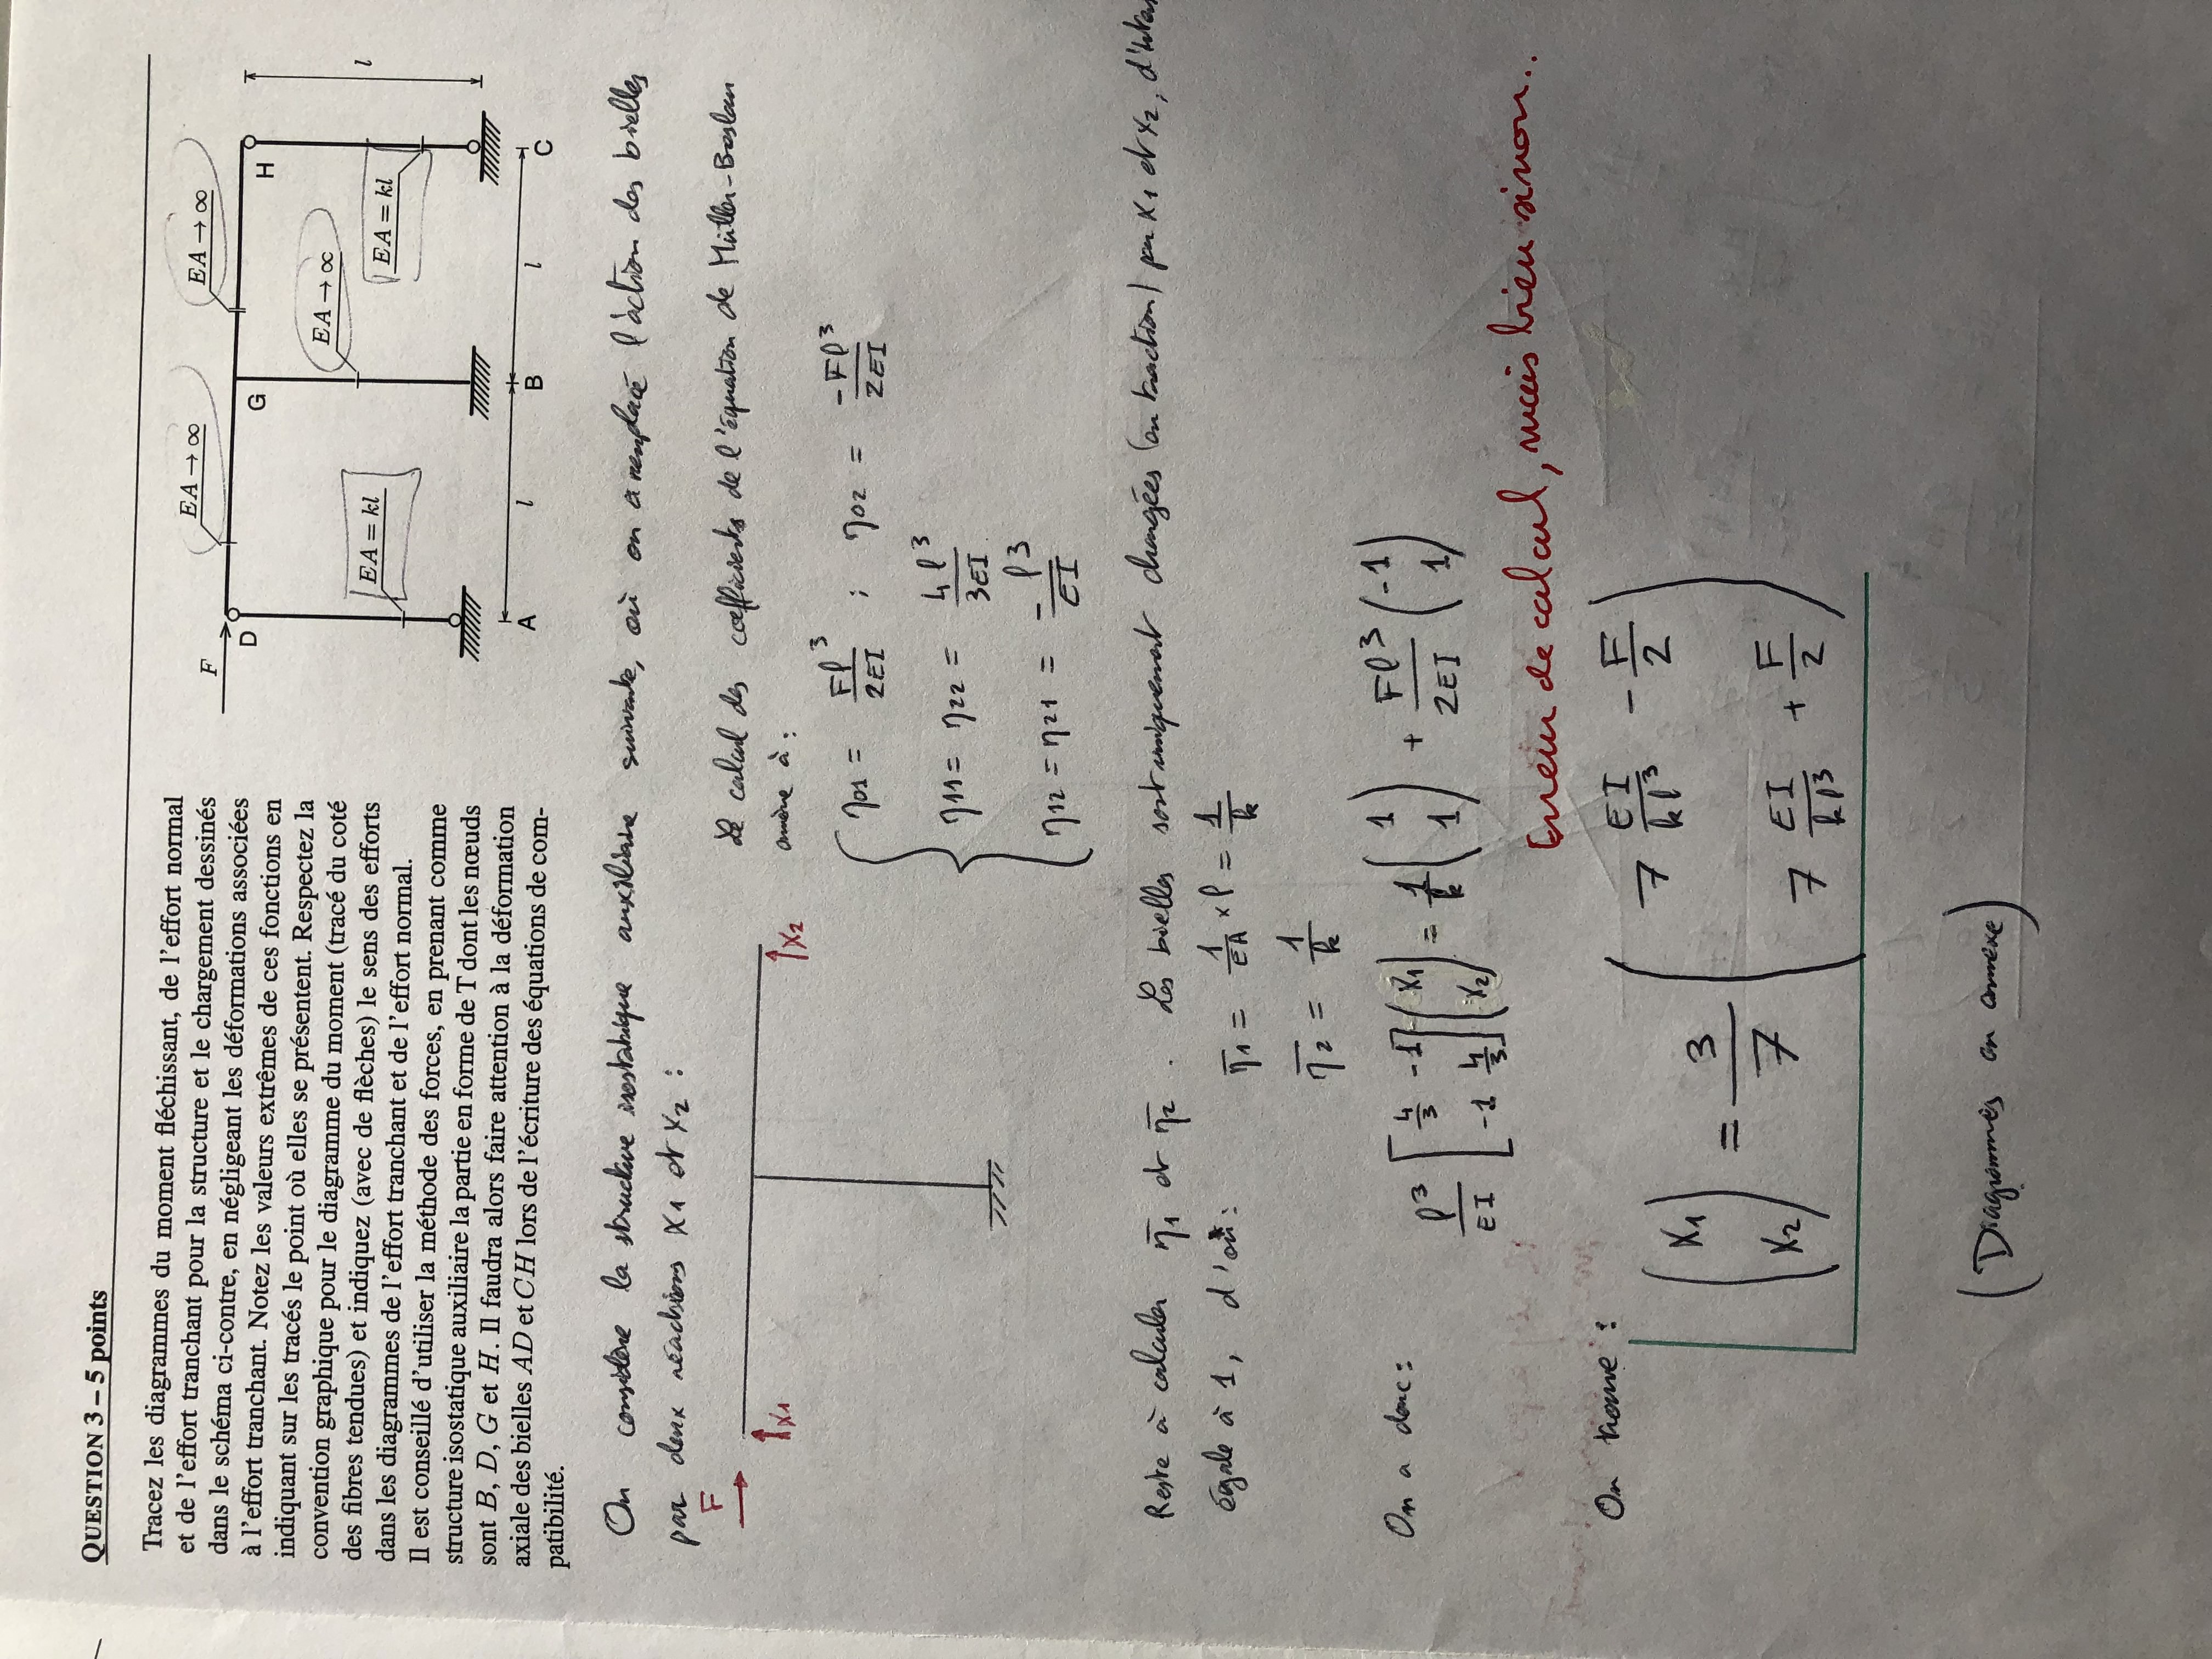 QUESTION 3 – 5 points
Tracez les diagrammes du moment fléchissant, de l'effort normal
et de l'effort tranchant pour la structure et le chargement dessinés
dans le schéma ci-contre, en négligeant les déformations associées
à l'effort tranchant. Notez les valeurs extrêmes de ces fonctions en
indiquant sur les tracés le point où elles se présentent. Respectez la
convention graphique pour le diagramme du moment (tracé du coté
des fibres tendues) et indiquez (avec de flèches) le sens des efforts
dans les diagrammes de l'effort tranchant et de l'effort normal.
Il est conseillé d'utiliser la méthode des forces, en prenant comme
structure isostatique auxiliaire la partie en forme de T dont les nœuds
sont B, D, G et H. Il faudra alors faire attention à la déformation
axiale des bielles AD et CH lors de l'écriture des équations de com-
patibilité.
F
EA → ∞
EA → ∞
D
G
H
EA = kl
EA → ∞
EA = kl
l
A
B
C
l
l
On considère la structure isostatique auxiliaire suivante, où on a remplacé l'action des bielles
par deux réactions X1 et X2 :
F
X1
X2
Le calcul des coefficients de l'équation de Müller-Breslau
amène à :
η01 = Fl³/2EI ; η02 = -Fl³/2EI
η11 = η22 = 4l³/3EI
η12 = η21 = -l³/EI
Reste à calculer η̄1 et η̄2. Les bielles sont uniquement chargées (en traction) par X1 et X2,
égale à 1, d'où :
η̄1 = 1/EA × l = 1/k
η̄2 = 1/k
On a donc :
l³/EI [4/3 -1 ; -1 4/3] (X1 ; X2) = 1/k (1 ; 1) + Fl³/2EI (-1 ; 1)
Erreur de calcul, mais bien sinon.
On trouve :
(X1 ; X2) = 3/7 (7 EI/kl³ - F/2 ; 7 EI/kl³ + F/2)
(Diagrammes en annexe)